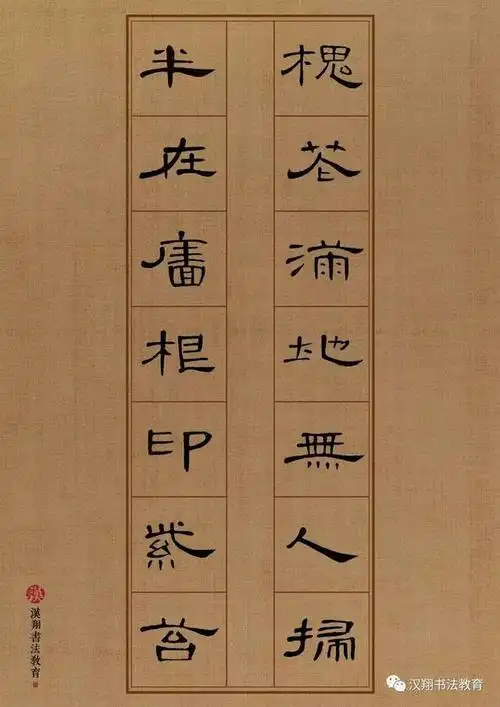 槐花滿地無人掃
半在廧根印紫苔
漢翔書法教育
汉翔书法教育